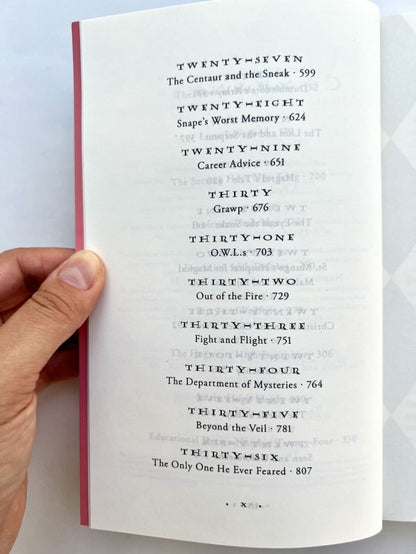 TWENTY-SEVEN
The Centaur and the Sneak · 599
TWENTY-EIGHT
Snape's Worst Memory · 624
TWENTY-NINE
Career Advice · 651
THIRTY
Grawp · 676
THIRTY-ONE
O.W.L.s · 703
THIRTY-TWO
Out of the Fire · 729
THIRTY-THREE
Fight and Flight · 751
THIRTY-FOUR
The Department of Mysteries · 764
THIRTY-FIVE
Beyond the Veil · 781
THIRTY-SIX
The Only One He Ever Feared · 807
· x ·